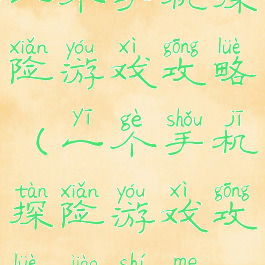 xiǎn yóu xì gōng lüè
险游戏攻略
yī gè shǒu jī
(一个手机
tàn xiǎn yóu xì gōng
探险游戏攻
lüè jiào shí me